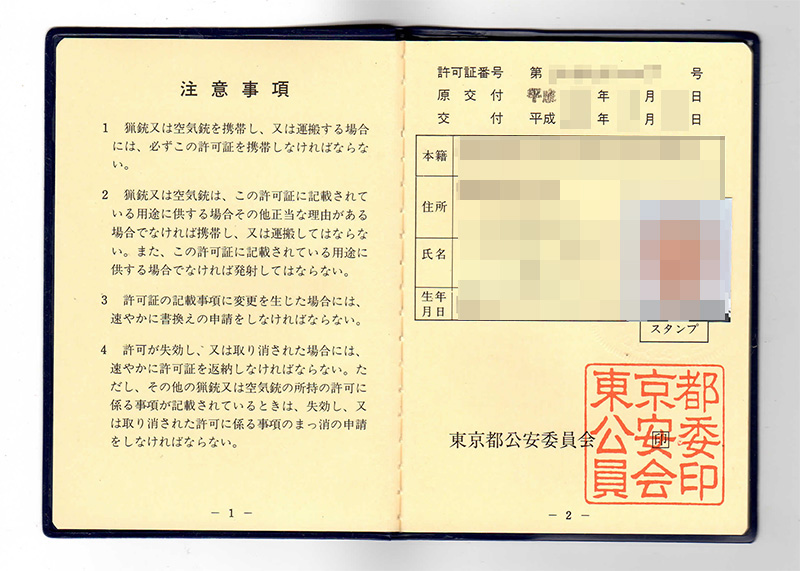 注意事項
1 猟銃又は空気銃を携帯し、又は運搬する場合
には、必ずこの許可証を携帯しなければならな
い。
2 猟銃又は空気銃は、この許可証に記載されて
いる用途に供する場合その他正当な理由がある
場合でなければ携帯し、又は運搬してはならな
い。また、この許可証に記載されている用途に
供する場合でなければ発射してはならない。
3 許可証の記載事項に変更を生じた場合には、
速やかに書換えの申請をしなければならない。
4 許可が失効し、又は取り消された場合には、
速やかに許可証を返納しなければならない。た
だし、その他の猟銃又は空気銃の所持の許可に
係る事項が記載されているときは、失効し、又
は取り消された許可に係る事項のまっ消の申請
をしなければならない。
− 1 −
許可証番号 第 号
原交付 平成 年 月 日
交付 平成 年 月 日
本籍
住所
氏名
生年
月日
スタンプ
東京都公安委員会 印
東京都
公安委
員会印
− 2 −